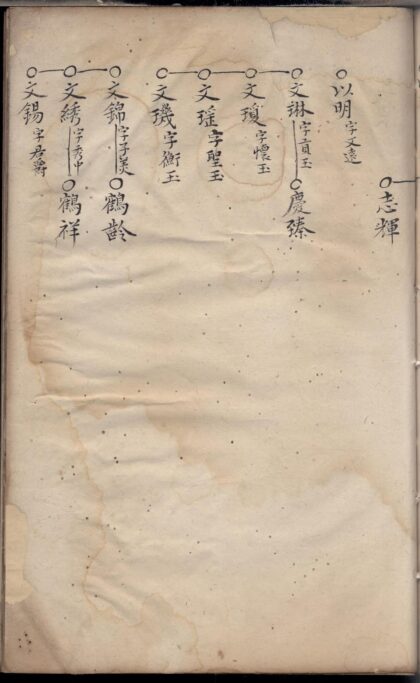 志輝
以明 字文遠
文琳 字貢玉
慶臻
文瓊 字懷玉
文瑤 字聖玉
文璣 字衡玉
文錦 字子美
鶴齡
文綉 字秀中
鶴祥
文錫 字君爵